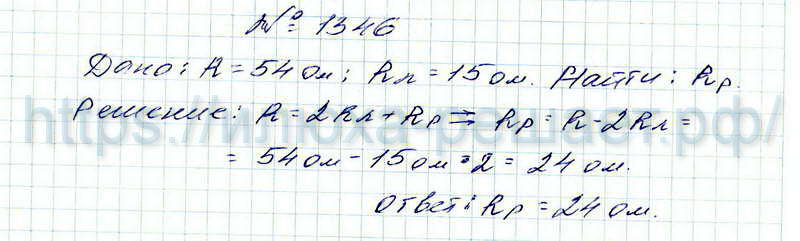 № 1346
Дано: R = 54 Ом; Rл = 15 Ом. Найти: Rр.
https://илюха-решает.рф/
Решение: R = 2Rл + Rр ⇒ Rр = R - 2Rл =
= 54 Ом - 15 Ом • 2 = 24 Ом.
Ответ: Rр = 24 Ом.